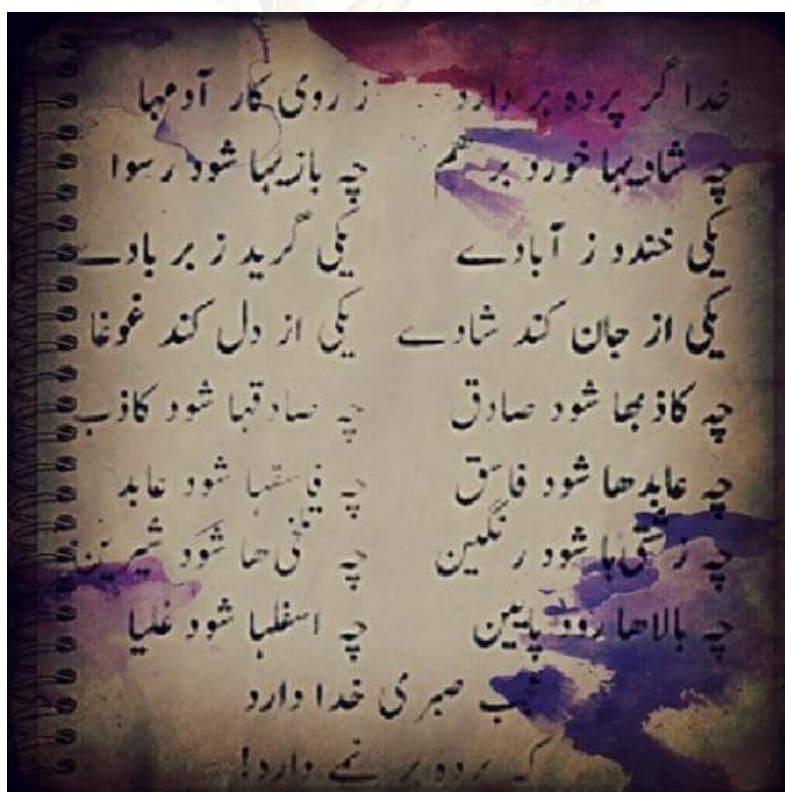 خدا گر پرده بر دارد ز روی کار آدمها
چه شادیها خورد بر هم چه بازیها شود رسوا
یکی خندد ز آبادے یکی گرید ز بر بادے
یکی از جان کند شادے یکی از دل کند غوغا
چه کاذبها شود صادق چه صادقها شود کاذب
چه عابدها شود فاسق چه فاسقها شود عابد
چه زشتی‌ها شود رنگین چه تلخی‌ها شود شیرین
چه بالاها رود پایین چه اسفلها شود علیا
عجب صبری خدا دارد
که پرده بر نمے دارد!